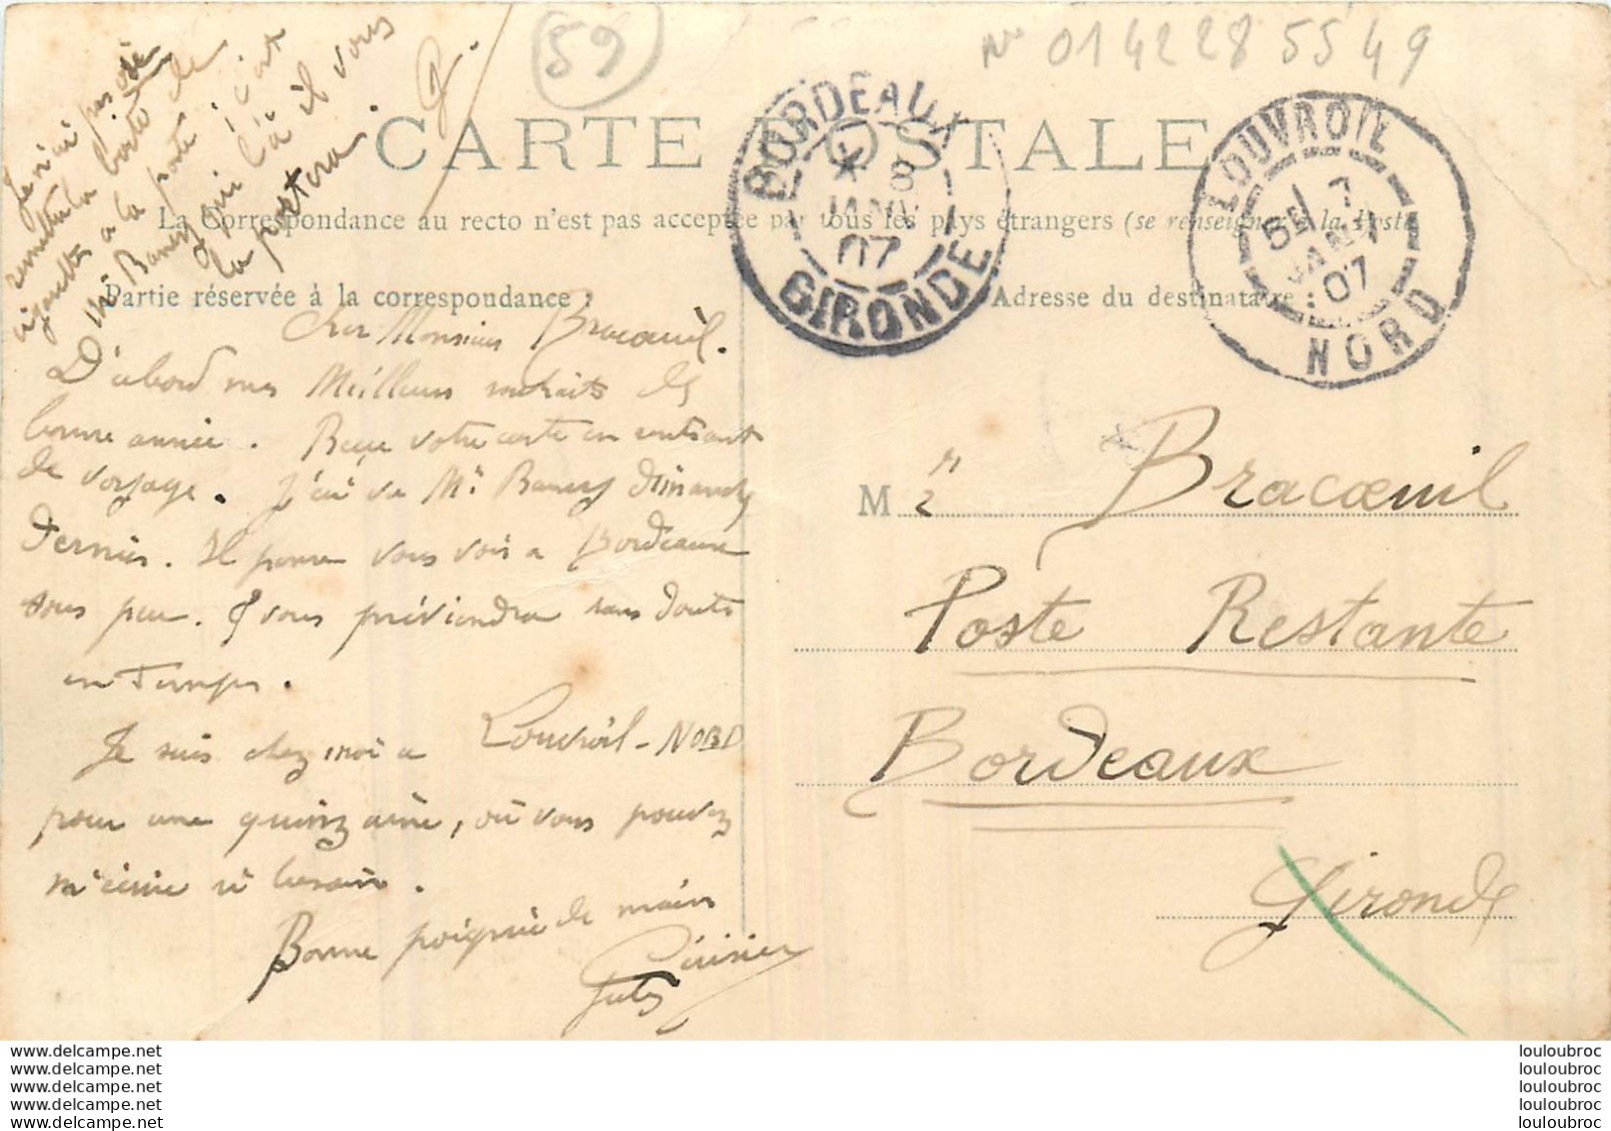 (59)
N° 0142285549
Je n'ai pas osé
remettre la boite de
cigarettes a la poste ; c'est
Mr Banery qui l'a il vous
la portera. G.
CARTE POSTALE
BORDEAUX
* 8
JANV
07
GIRONDE
LOUVROIL
5E 7
JANV
07
NORD
La Correspondance au recto n'est pas acceptée par tous les pays étrangers (se renseigner à la Poste
Partie réservée à la correspondance
Adresse du destinataire
Cher Monsieur Bracoeuil.
D'abord mes Meilleurs souhaits de
bonne année. Reçu votre carte en rentrant
de voyage. J'ai vu Mr Banery dimanche
dernier. Il pense vous voir a Bordeaux
sous peu. Il vous préviendra sans doute
en temps.
Je suis chez moi a Louvroil - NORD
pour une quinzaine, où vous pouvez
m'écrire si besoin.
Bonne poignée de main
Jules
M r Bracoeuil
Poste Restante
Bordeaux
Gironde
www.delcampe.net
www.delcampe.net
www.delcampe.net
www.delcampe.net
www.delcampe.net
louloubroc
louloubroc
louloubroc
louloubroc
louloubroc